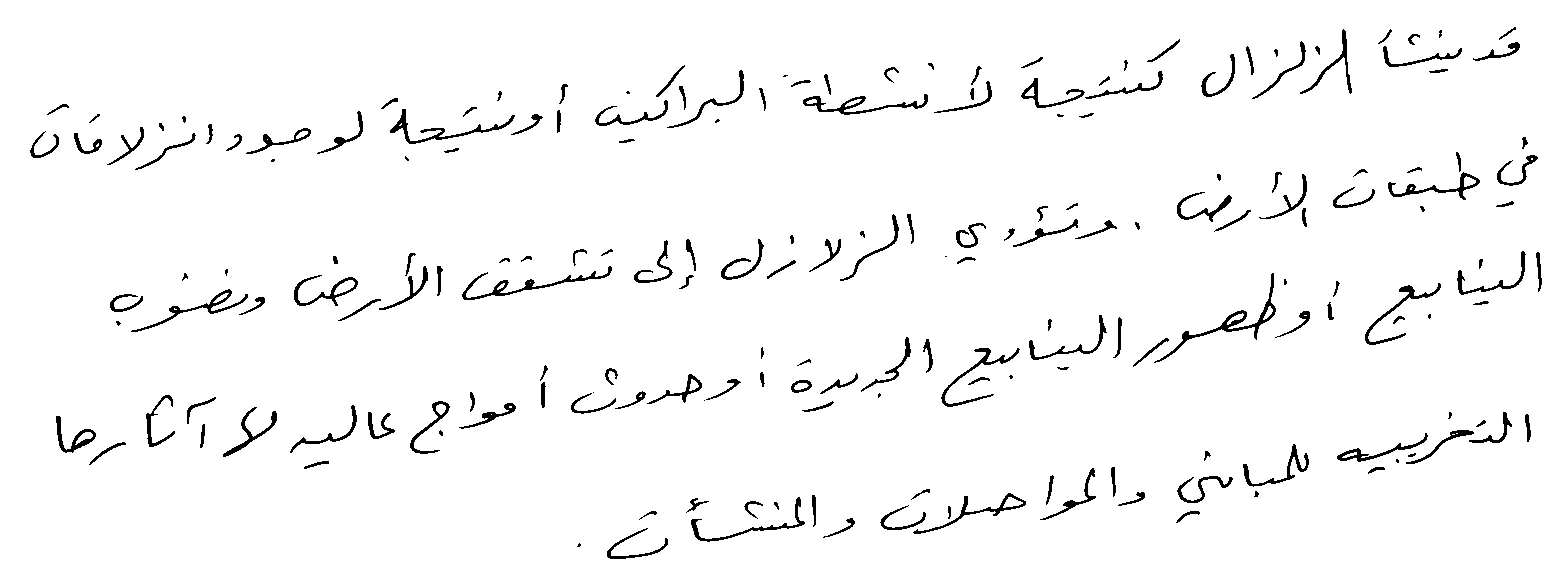 قد ينشأ الزلزال كنتيجة لأنشطة البراكين أو نتيجة لوجود انزلاقات
في طبقات الأرض . وتؤدي الزلازل إلى تشقق الأرض ونضوب
الينابيع أو ظهور الينابيع الجديدة أو حدوث أمواج عاليه لا آثارها
التخريبيه للمباني والمواصلات والمنشأت .